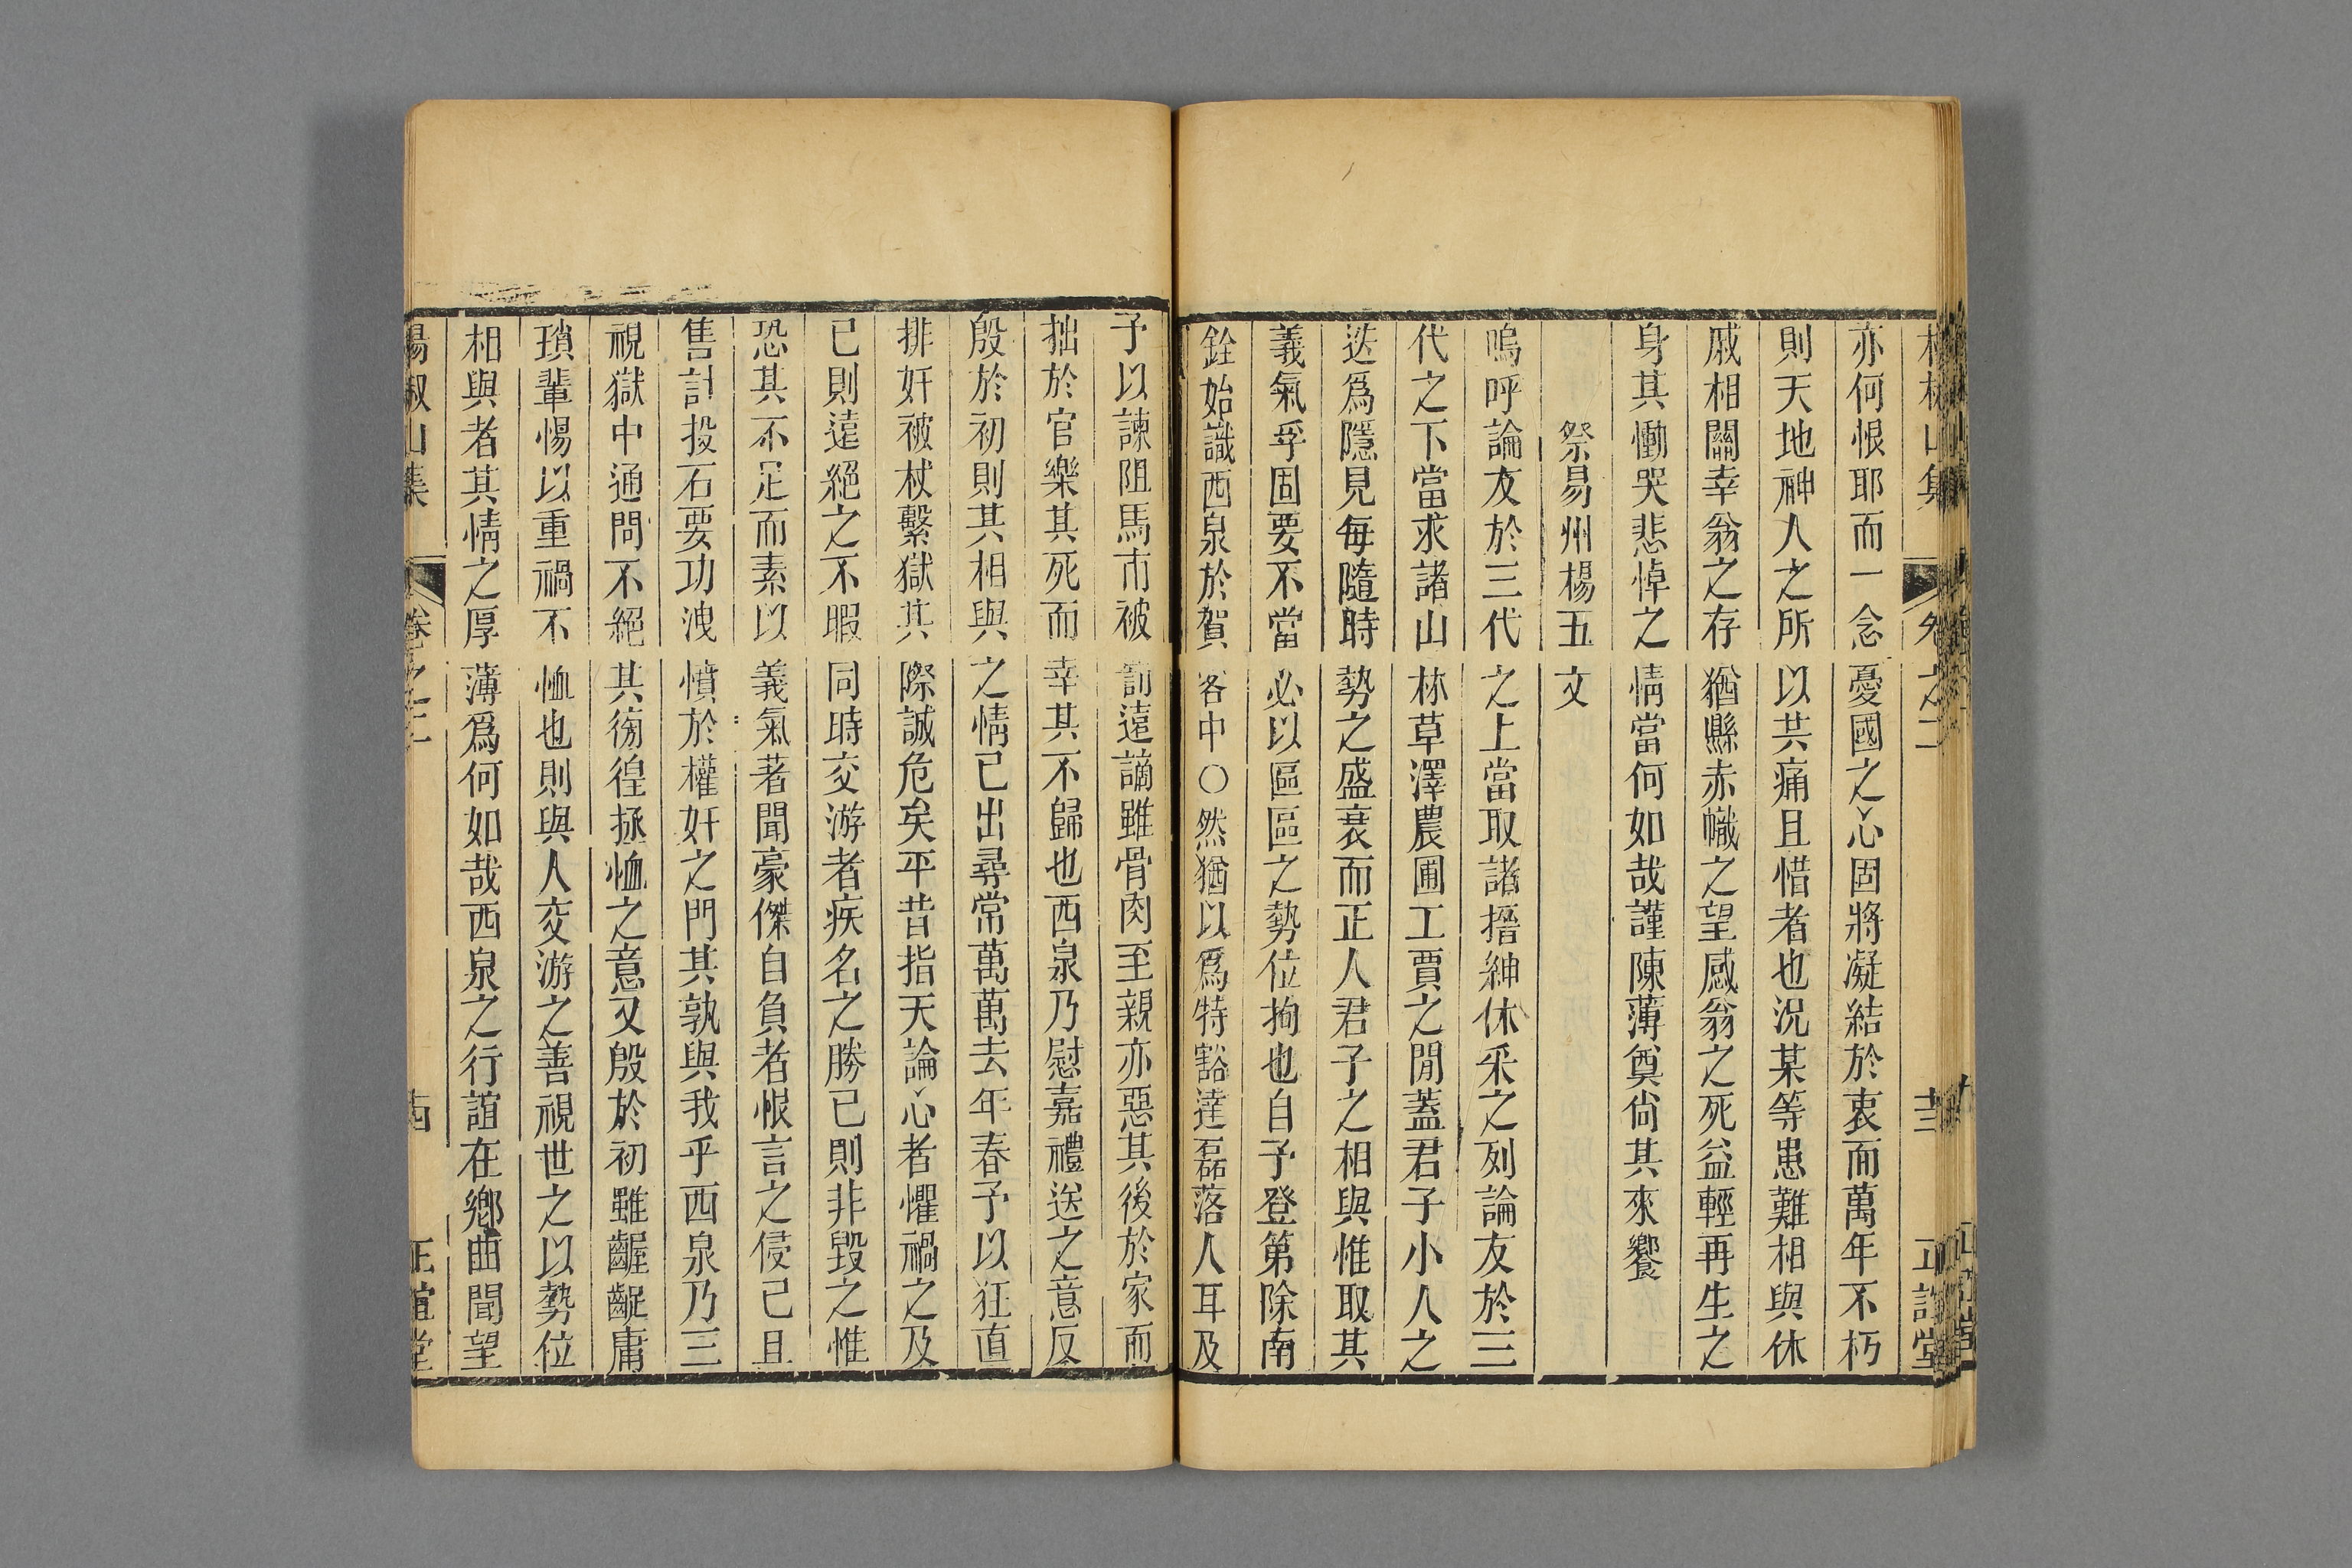 亦何恨耶而一念憂國之心固將凝結於衷而萬年不朽
則天地神人之所以共痛且惜者也況某等患難相與休
戚相關幸翁之存猶縣赤幟之望感翁之死益輕再生之
身其慟哭悲悼之情當何如哉謹陳薄奠尙其來饗
祭易州楊五文
嗚呼論友於三代之上當取諸搢紳休采之列論友於三
代之下當求諸山林草澤農圃工賈之閒蓋君子小人之
迭爲隱見每隨時勢之盛衰而正人君子之相與惟取其
義氣孚固要不當必以區區之勢位拘也自予登第除南
銓始識西泉於賀客中○然猶以爲特豁達磊落人耳及
予以諫阻馬市被罰遠謫雖骨肉至親亦惡其後於家而
拙於官樂其死而幸其不歸也西泉乃慰嘉禮送之意反
殷於初則其相與之情已出尋常萬萬去年春予以狂直
排奸被杖繫獄其際誠危矣平昔指天論心者懼禍之及
已則遠絕之不暇同時交游者疾名之勝已則非毀之惟
恐其不足而素以義氣著聞豪傑自負者恨言之侵己且
售計投石要功洩憤於權奸之門其孰與我乎西泉乃三
視獄中通問不絕其徬徨拯恤之意又殷於初雖齷齪庸
瑣輩惕以重禍不恤也則與人交游之善視世之以勢位
相與者其情之厚薄爲何如哉西泉之行誼在鄉曲聞望
楊椒山集 卷之二 十四 正誼堂